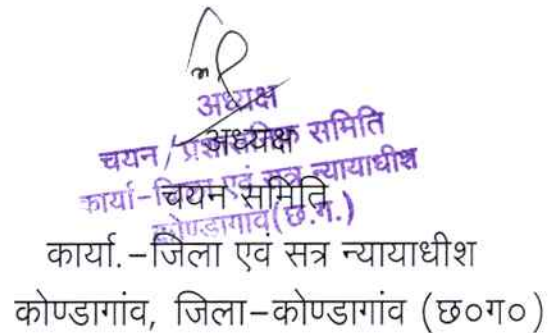 अध्यक्ष
चयन / प्रशासनिक समिति
कार्या-जिला एवं सत्र न्यायाधीश
कोण्डागांव(छ.ग.)
अध्यक्ष
चयन समिति
कार्या.-जिला एवं सत्र न्यायाधीश
कोण्डागांव, जिला-कोण्डागांव (छ०ग०)